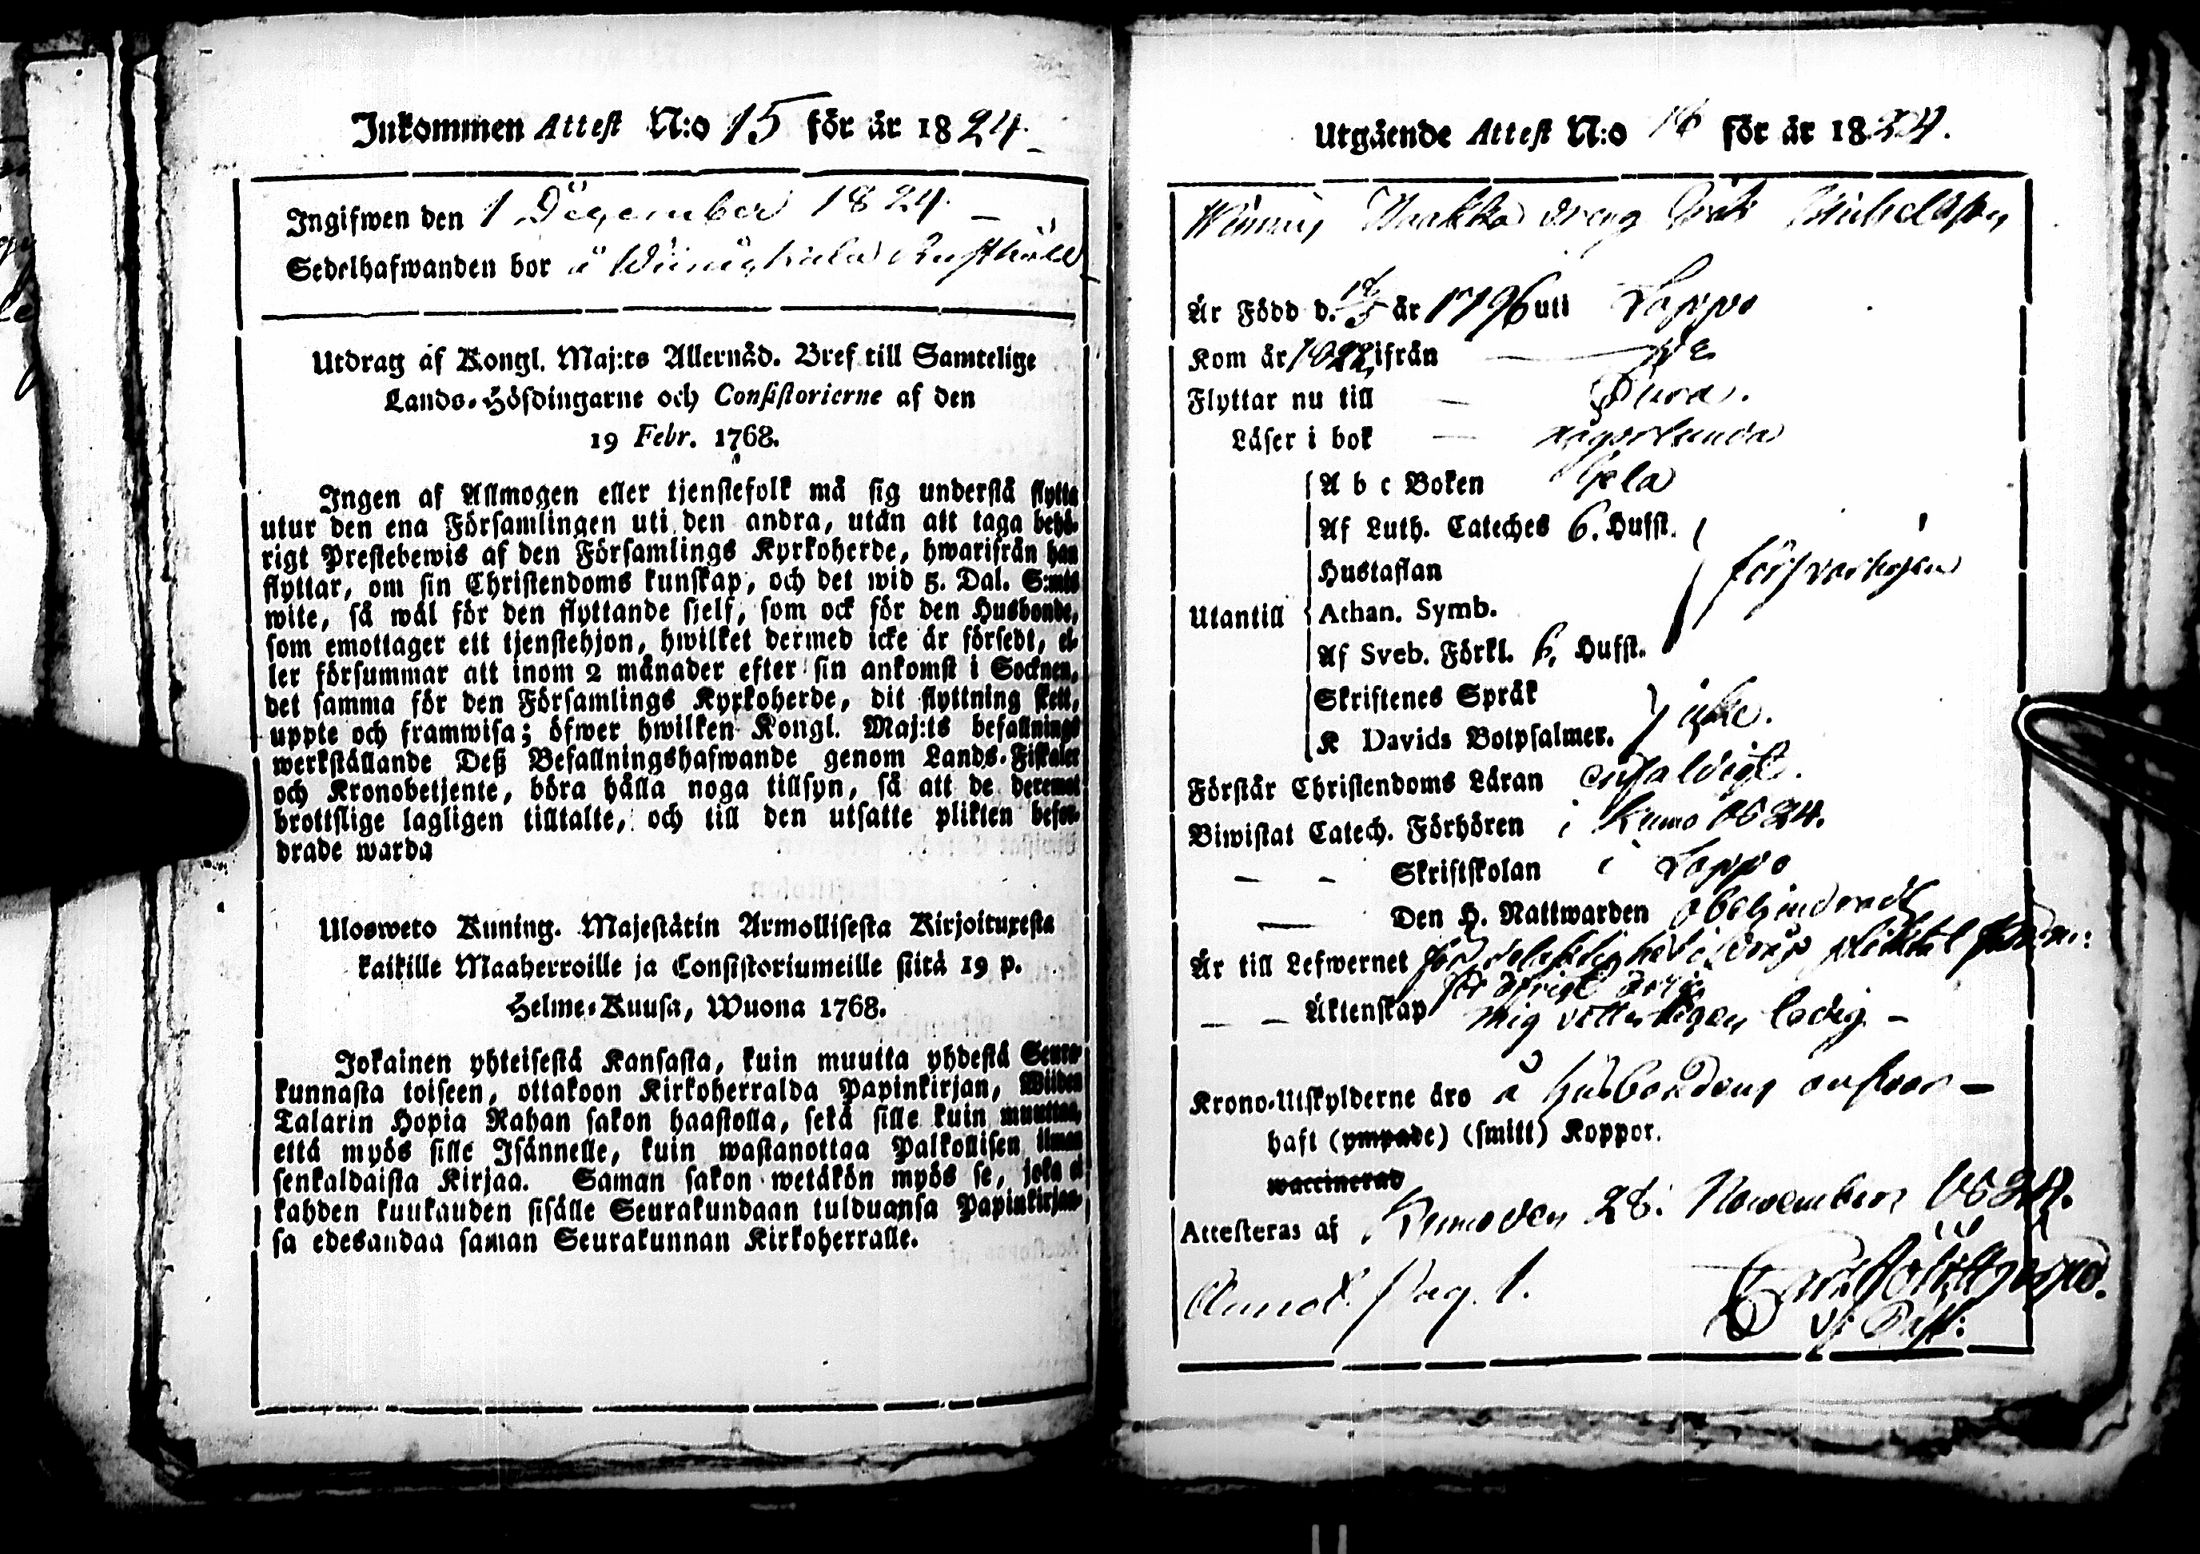 Inkommen Attest N:o 15 för år 1824.
Ingifwen den 1 December 1824.
Sedelhafwanden bor å Rusthåll
Utdrag af Kongl. Maj:ts Allernåd. Bref till Samtelige
Lands-Höfdingarne och Consistorierne af den
19 Febr. 1768.
Ingen af Allmogen eller tjenstefolk må sig understå flytta
utur den ena Församlingen uti den andra, utan att taga behö-
rigt Prestebewis af den Församlings Kyrkoherde, hwarifrån han
flyttar, om sin Christendoms kunskap, och det wid 5. Dal. S:mts
wite, så wäl för den flyttande sjelf, som ock för den Husbonde,
som emottager ett tjenstehjon, hwilket dermed icke är försedt, el-
ler försummar att inom 2 månader efter sin ankomst i Socknen,
det samma för den Församlings Kyrkoherde, dit flyttning skett,
uppte och framwisa; öfwer hwilken Kongl. Maj:ts befallnings
werkställande Deß Befallningshafwande genom Lands-Fiskaler
och Kronobetjente, böra hålla noga tillsyn, så att de deremot
brottslige lagligen tilltalte, och till den utsatte plikten befor-
drade warda
Ulosweto Kuning. Majestätin Armollisesta Kirjoituxesta
kaikille Maaherroille ja Consistoriumeille siitä 19 p.
Helme-Kuusa, Wuona 1768.
Jokainen yhteisestä Kansasta, kuin muutta yhdestä Seura-
kunnasta toiseen, ottakoon Kirkoherralda Papinkirjan, Wiiden
Talarin Hopia Rahan sakon haastolla, sekä sille kuin muuttaa,
että myös sille Isännelle, kuin wastanottaa Palkollisen ilman
senkaldaista Kirjaa. Saman sakon wetäkön myös se, joka ei
kahden kuukauden sisälle Seurakundaan tulduansa Papinkirjan-
sa edesandaa saman Seurakunnan Kirkoherralle.
Utgående Attest N:o 16 för år 1824.
dreng Michelsson
Är Född d. år 1796 uti Loppo
Kom år 1822 ifrån
Flyttar nu till Eura.
Läser i bok någorlunda
Utantill
A b c Boken Hela
Af Luth. Cateches 6. Hufst.
Hustaflan försvarligen
Athan. Symb.
Af Sveb. Förkl. 6. Hufst.
Skriftenes Språk
K Davids Botpsalmer. icke.
Förstår Christendoms Läran enfaldigt.
Biwistat Catech. Förhören i Kumo 1824.
– – Skriftskolan i Loppo
— Den H. Nattwarden obehindradt
Är till Lefwernet för
för öfrigt ärlig
– – Äktenskap mig vetterligen ledig –
Krono-Utskylderne äro å husbondens ansvar –
haft (ympade) (smitt) Koppor.
waccinerad
Attesteras af Kumo den 28. November 1824.
Annot. Pag. 1.
V: Past: